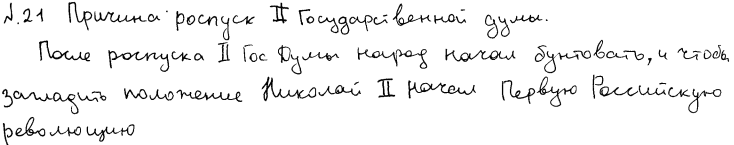 N.21 Причина роспуск II Государственной думы.
После роспуска II Гос Думы народ начал бунтовать, и чтобы
загладить положение Николай II начал Первую Российскую
революцию